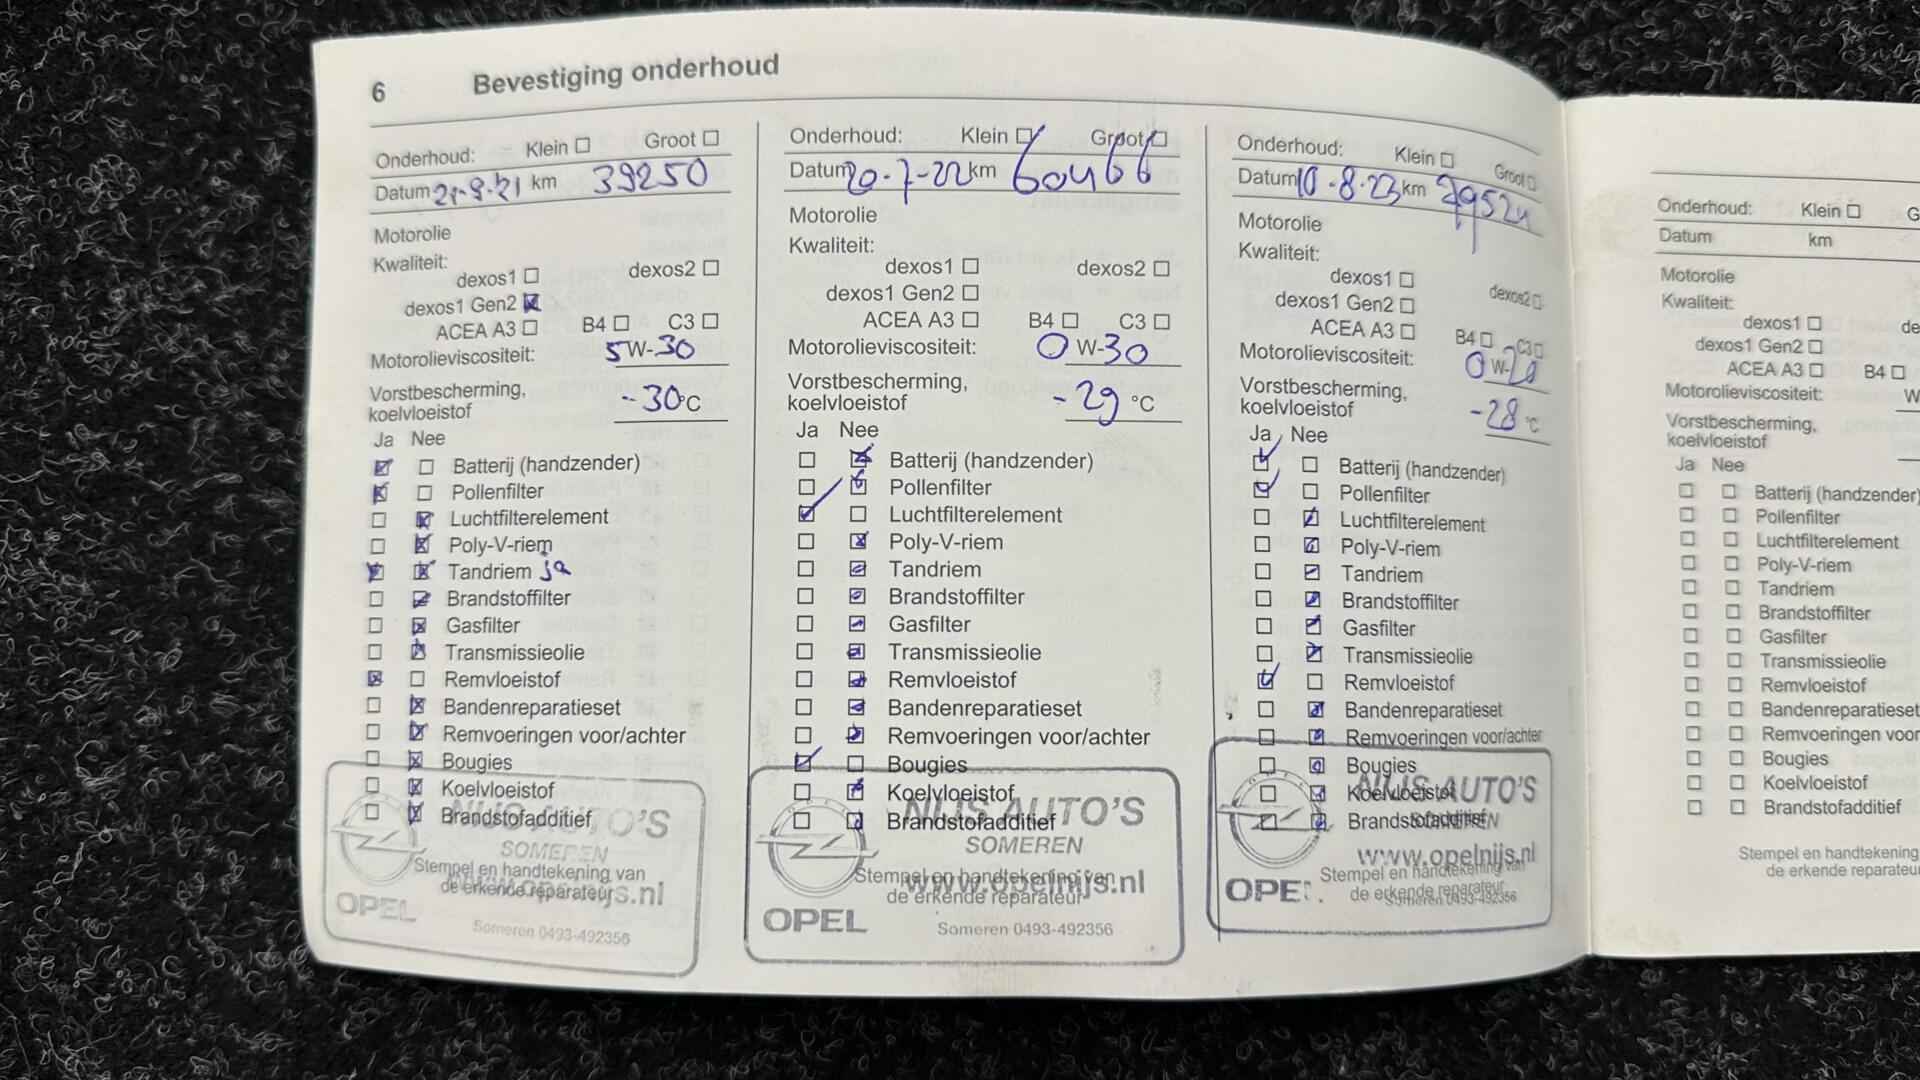 6 Bevestiging onderhoud
Onderhoud: Klein Groot
Datum 21-9-21 km 39250
Motorolie
Kwaliteit:
dexos1 dexos2
dexos1 Gen2
ACEA A3 B4 C3
Motorolieviscositeit: 5W-30
Vorstbescherming,
koelvloeistof -30°C
Ja Nee
Batterij (handzender)
Pollenfilter
Luchtfilterelement
Poly-V-riem
Tandriem ja
Brandstoffilter
Gasfilter
Transmissieolie
Remvloeistof
Bandenreparatieset
Remvoeringen voor/achter
Bougies
Koelvloeistof
Brandstofadditief
NIJS AUTO'S
SOMEREN
Stempel en handtekening van
de erkende reparateur
OPEL
Someren 0493-492356
Onderhoud: Klein Groot
Datum 20-7-22 km 60466
Motorolie
Kwaliteit:
dexos1 dexos2
dexos1 Gen2
ACEA A3 B4 C3
Motorolieviscositeit: 0 W-30
Vorstbescherming,
koelvloeistof -29 °C
Ja Nee
Batterij (handzender)
Pollenfilter
Luchtfilterelement
Poly-V-riem
Tandriem
Brandstoffilter
Gasfilter
Transmissieolie
Remvloeistof
Bandenreparatieset
Remvoeringen voor/achter
Bougies
Koelvloeistof
NIJS AUTO'S
Brandstofadditief
SOMEREN
Stempel en handtekening van
www.opelnijs.nl
de erkende reparateur
OPEL
Someren 0493-492356
Onderhoud: Klein Groot
Datum 10-8-23 km 79524
Motorolie
Kwaliteit:
dexos1 dexos2
dexos1 Gen2
ACEA A3 B4 C3
Motorolieviscositeit: 0 W-20
Vorstbescherming,
koelvloeistof -28 °C
Ja Nee
Batterij (handzender)
Pollenfilter
Luchtfilterelement
Poly-V-riem
Tandriem
Brandstoffilter
Gasfilter
Transmissieolie
Remvloeistof
Bandenreparatieset
Remvoeringen voor/achter
Bougies
Koelvloeistof
NIJS AUTO'S
Brandstofadditief
SOMEREN
www.opelnijs.nl
Stempel en handtekening van
de erkende reparateur
OPEL
Someren 0493-492356
Onderhoud: Klein G
Datum km
Motorolie
Kwaliteit:
dexos1 de
dexos1 Gen2
ACEA A3 B4
Motorolieviscositeit: W
Vorstbescherming,
koelvloeistof
Ja Nee
Batterij (handzender)
Pollenfilter
Luchtfilterelement
Poly-V-riem
Tandriem
Brandstoffilter
Gasfilter
Transmissieolie
Remvloeistof
Bandenreparatieset
Remvoeringen voor
Bougies
Koelvloeistof
Brandstofadditief
Stempel en handtekening
de erkende reparateu